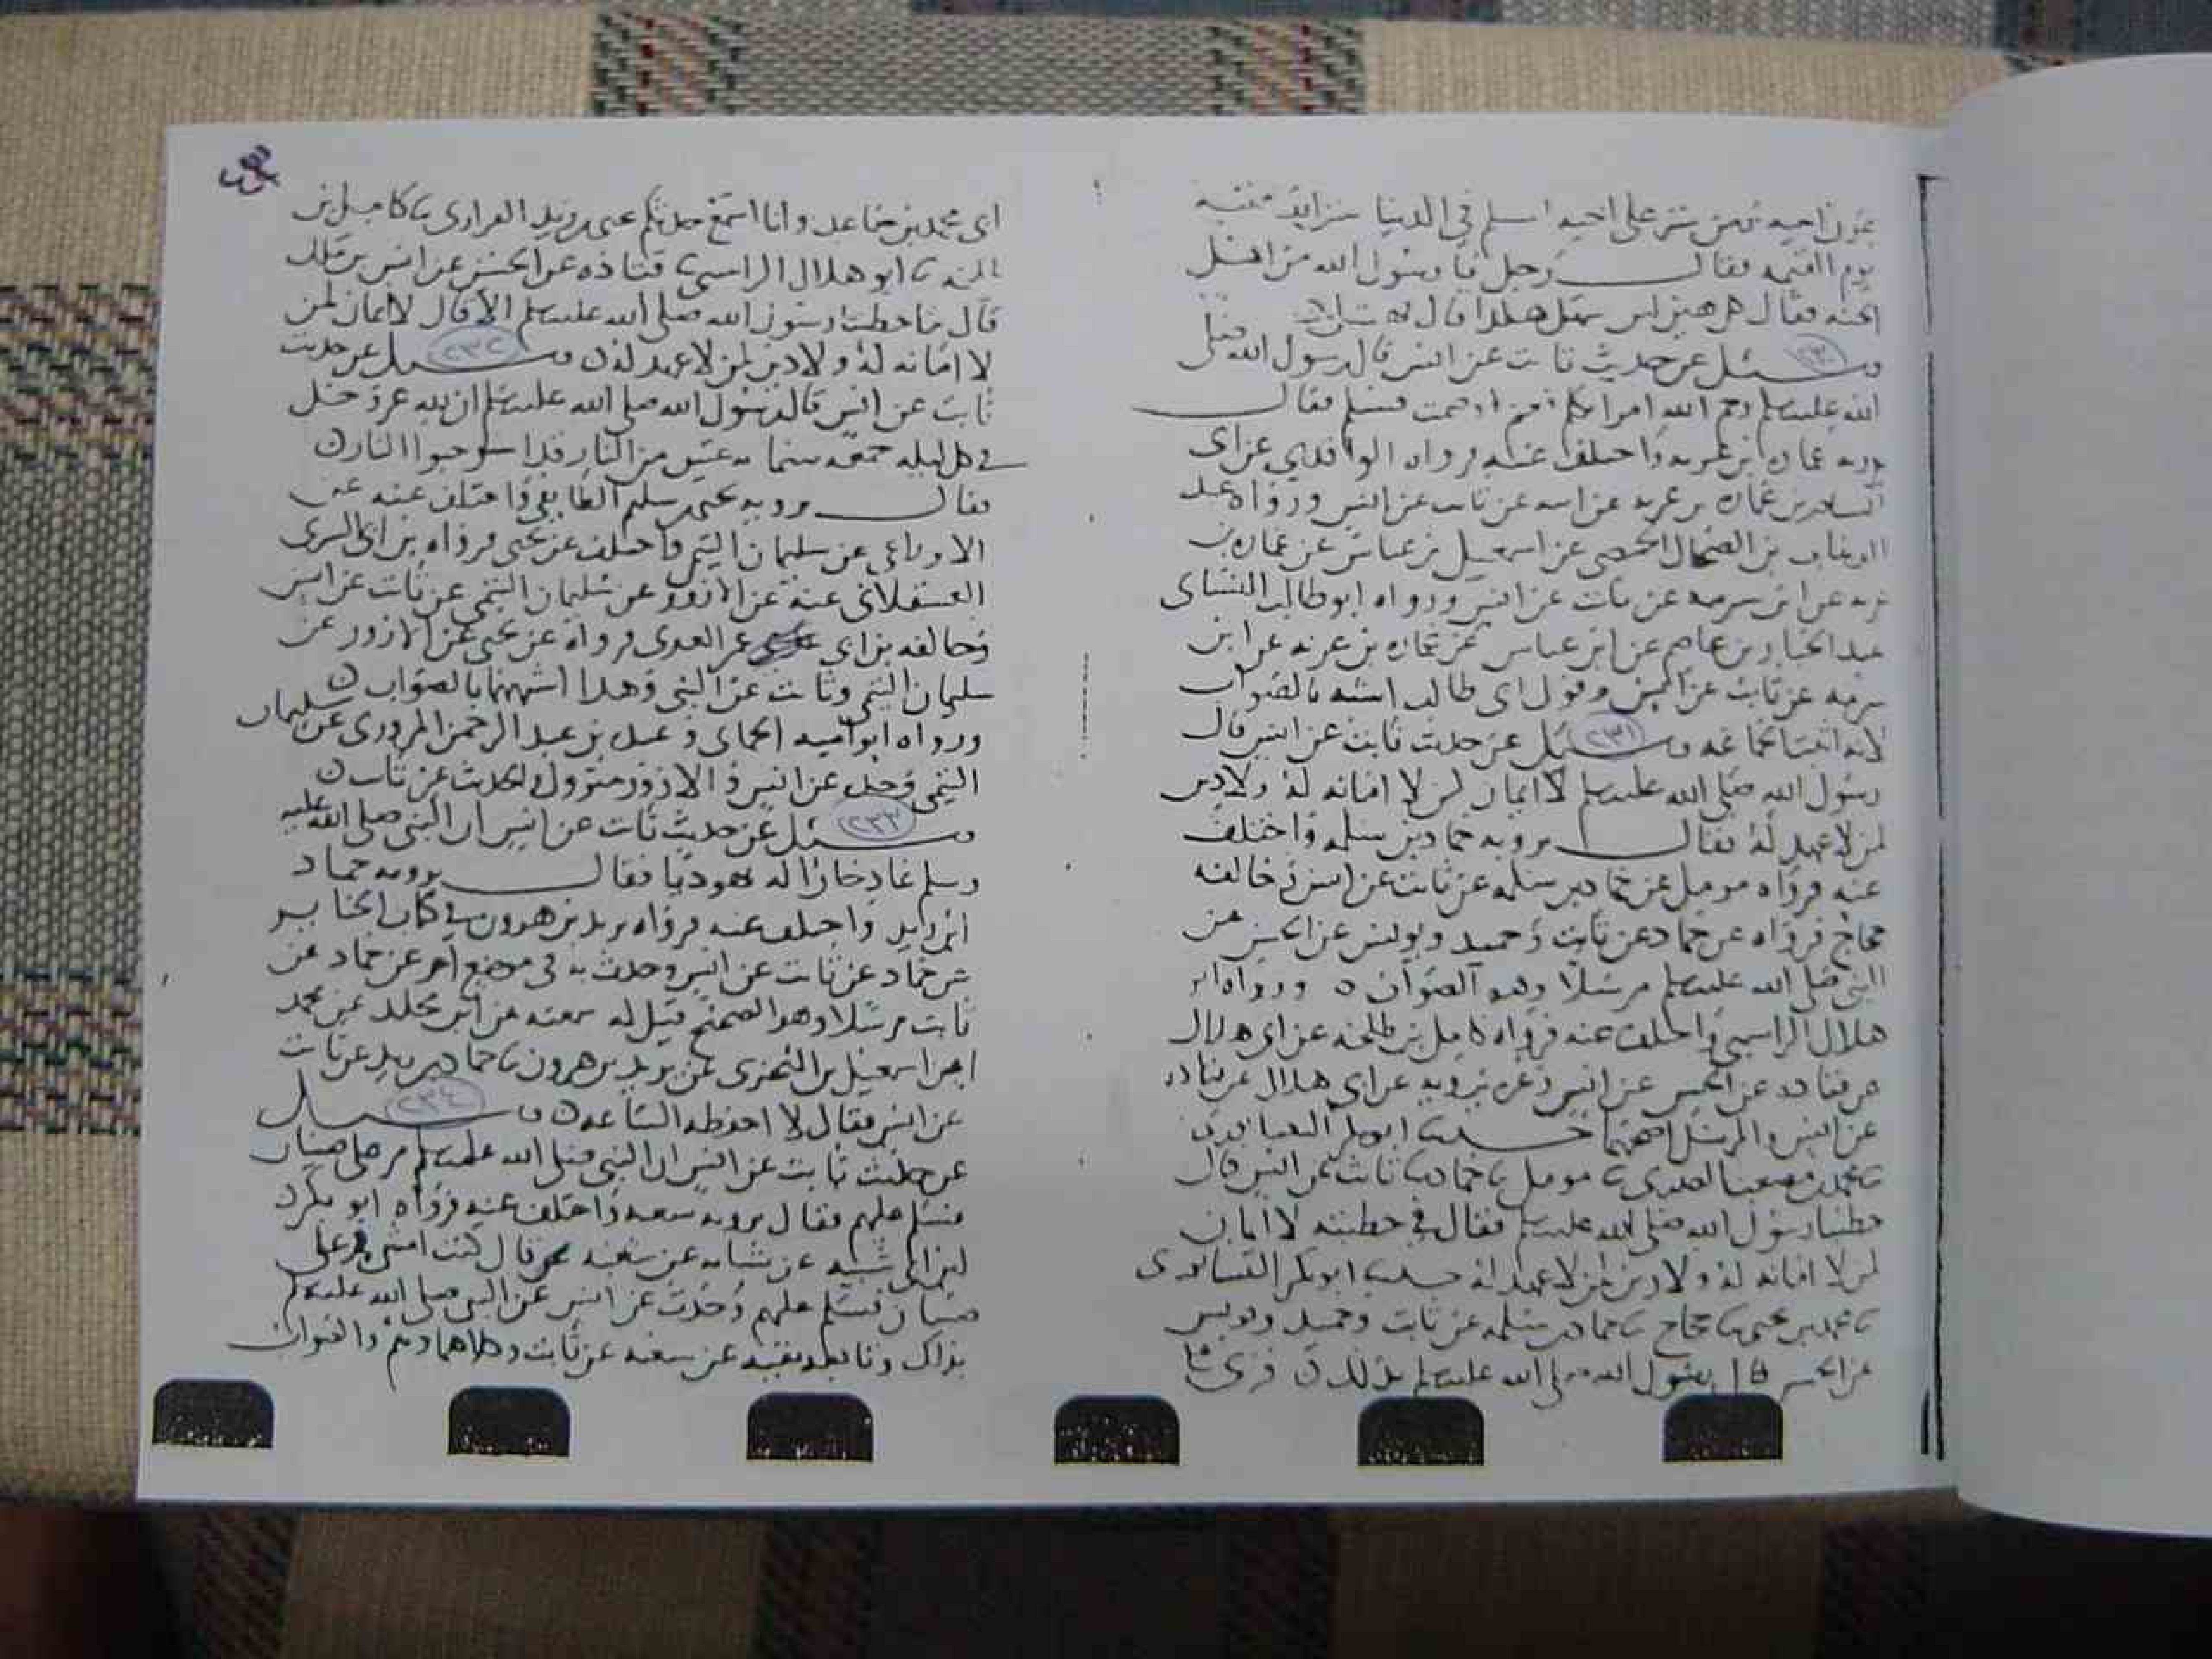 عون اخيه فمن ستر على اخيه المسلم في الدنيا ستر الله عليه
يوم القيمه فقال رجل يا رسول الله من اهل
الجنه فقال
٢٣٠
وسئل عن حديث ثابت عن انس قال رسول الله صلى
الله عليه وسلم رحم الله امرا تكلم فغنم او صمت فسلم فقال
يرويه عماره بن غزيه واختلف عنه فرواه الواقدي عن ابي
بن عماره بن غزيه عن ابيه عن ثابت عن انس ورواه عبد
الوهاب بن الضحاك الحمصي عن اسمعيل بن عياش عن عماره بن
غزيه عن ابن عن ثابت عن انس ورواه ابو طالب النسائي
عبد الجبار بن عاصم عن ابن عياش عن عماره بن غزيه عن ابن
عن ثابت عن انس وقول ابي طالب اشبه بالصواب
٢٣١
وسئل عن حديث ثابت عن انس قال
رسول الله صلى الله عليه وسلم لا ايمان لمن لا امانه له ولا دين
لمن لا عهد له فقال يرويه حماد بن سلمه واختلف
عنه فرواه مومل عن حماد بن سلمه عن ثابت عن انس وخالفه
حجاج فرواه عن حماد عن ثابت وحميد ويونس عن الحسن عن
النبي صلى الله عليه وسلم مرسلا وهو الصواب ورواه ابو
هلال الراسبي واختلف عنه فرواه كامل بن طلحه عن ابي هلال
عن قتاده عن الحسن عن انس وغيره يرويه عن ابي هلال عن قتاده
عن انس والمرسل اصحهما حدثنا ابو بكر النيسابوري
مومل ثنا حماد ثنا ثابت عن انس قال
خطبنا رسول الله صلى الله عليه وسلم فقال في خطبته لا ايمان
لمن لا امانه له ولا دين لمن لا عهد له حدثنا ابو بكر النيسابوري
ثنا محمد بن يحيى ثنا حجاج ثنا حماد بن سلمه عن ثابت وحميد ويونس
عن الحسن قال رسول الله صلى الله عليه وسلم بذلك قرئ على
ابي محمد بن صاعد وانا اسمع حدثكم كامل بن
طلحه ثنا ابو هلال الراسبي ثنا قتاده عن الحسن عن انس بن مالك
قال ما خطبنا رسول الله صلى الله عليه وسلم الا قال لا ايمان لمن
٢٣٢
لا امانه له ولا دين لمن لا عهد له وسئل عن حديث
ثابت عن انس قال رسول الله صلى الله عليه وسلم ان لله عز وجل
في كل ليله جمعه ستمايه عتيق من النار قد استوجبوا النار
فقال يرويه يحيى بن سليم الطايفي واختلف عنه عن
الاوزاعي عن سليمان التيمي واختلف عن يحيى فرواه بن ابي السري
العسقلاني عنه عن الازور عن سليمان التيمي عن ثابت عن انس
وخالفه بن ابي عمر العدني فرواه عن يحيى عن الازور عن
سليمان التيمي وثابت عن النبي وهذا اشبههما بالصواب
ورواه ابو اميه بن عبد الرحمن المروزي عن سليمان
التيمي وحده عن انس والازور متروك والحديث عن ثابت
٢٣٣
وسئل عن حديث ثابت عن انس ان النبي صلى الله عليه
وسلم عاد جارا له يهوديا فقال يرويه حماد
ابن زيد واختلف عنه فرواه يزيد بن هرون في كتاب الجنايز
عن حماد عن ثابت عن انس وحدث به في موضع اخر عن حماد عن
ثابت مرسلا وهو الصحيح قيل له سمعته من ابن مخلد عن محمد
ابن اسمعيل بن البختري عن يزيد بن هرون ثنا حماد بن زيد عن ثابت
٢٣٤
عن انس فقال لا احفظه الساعه وسئل
عن حديث ثابت عن انس ان النبي صلى الله عليه وسلم مر على صبيان
فسلم عليهم فقال يرويه شعبه واختلف عنه فرواه ابو بكر
ابن ابي شيبه عن شبابه عن شعبه قال كنت امشي فمر على
صبيان فسلم عليهم وحدث عن انس عن النبي صلى الله عليه وسلم
بذلك وتابعه بقيه عن شعبه عن ثابت وكلاهما وهم والصواب